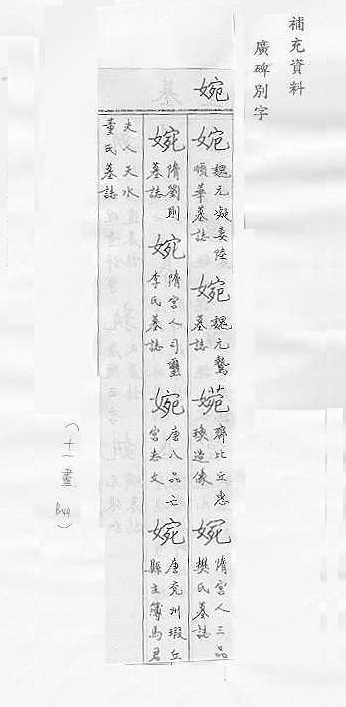 補充資料
廣碑別字
婉
婉 魏元凝妻陸
順華墓誌
婉 魏元鷙
墓誌
齊比丘惠
瑛造像
隋宮人三品
樊氏墓誌
婉 隋劉則
墓誌
婉 隋宮人司璽
李氏墓誌
婉 唐八品亡
宮志文
婉 唐兗州瑕丘
縣主簿馬君
夫人天水
董氏墓誌
(十一畫 B44)